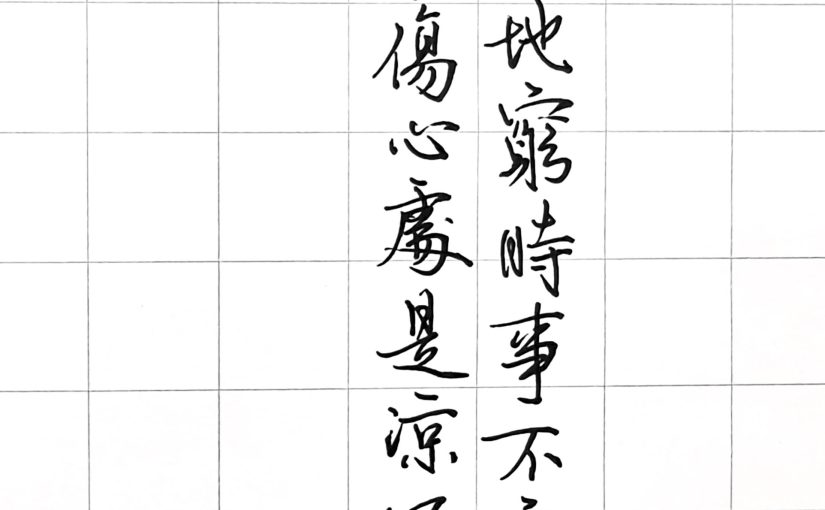 地窮時事不
傷心處是涼